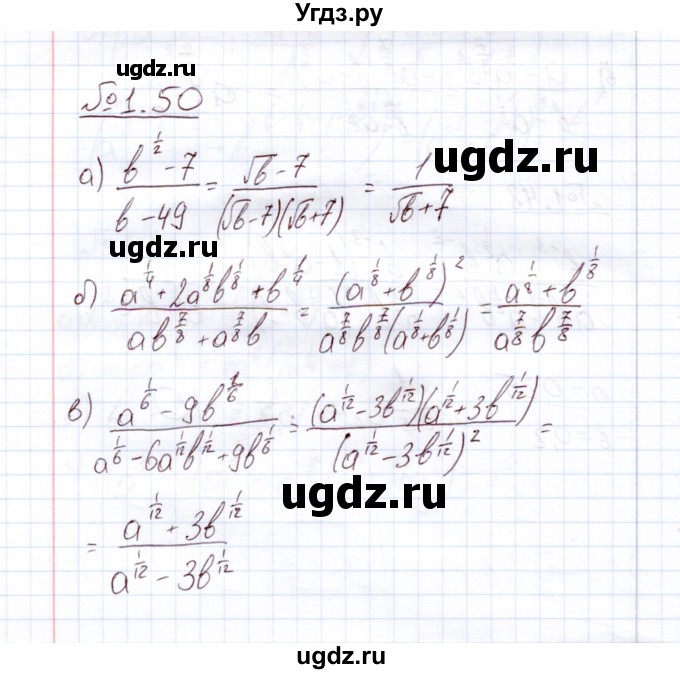 Угдз.ру
ugdz.ru
№1.50
ugdz.ru
а) (b^(1/2) - 7)/(b - 49) = (√b - 7)/((√b-7)(√b+7)) = 1/(√b+7)
б) (a^(1/4) + 2a^(1/8)b^(1/8) + b^(1/4))/(ab^(7/8) + a^(7/8)b) = (a^(1/8) + b^(1/8))^2/(a^(7/8)b^(7/8)(a^(1/8)+b^(1/8))) = (a^(1/8) + b^(1/8))/(a^(7/8)b^(7/8))
в) (a^(1/6) - 9b^(1/6))/(a^(1/6) - 6a^(1/12)b^(1/12) + 9b^(1/6)) = ((a^(1/12) - 3b^(1/12))(a^(1/12) + 3b^(1/12)))/(a^(1/12) - 3b^(1/12))^2 =
ugdz.ru
ugdz.ru
= (a^(1/12) + 3b^(1/12))/(a^(1/12) - 3b^(1/12))
ugdz.ru